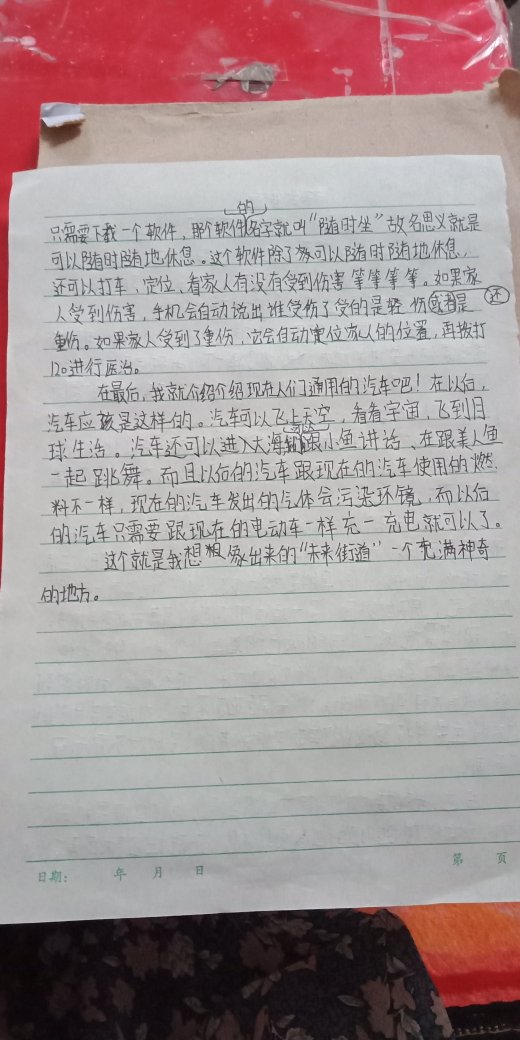 的
只需要下载一个软件，那个软件名字就叫“随时坐”故名思义就是
可以随时随地休息。这个软件除了可以随时随地休息，
还可以打车、定位、看家人有没有受到伤害等等等等。如果家
还
人受到伤害，手机会自动说出谁受伤了受的是轻伤是
重伤。如果家人受到了重伤，它会自动定位家人的位置，再拨打
120进行医治。
在最后，我就介绍介绍现在人们通用的汽车吧！在以后，
汽车应该是这样的。汽车可以飞上天空，看看宇宙，飞到月
球生活。汽车还可以进入大海跟小鱼讲话、在跟美人鱼
一起跳舞。而且以后的汽车跟现在的汽车使用的燃
料不一样，现在的汽车发出的气体会污染环镜，而以后
的汽车只需要跟现在的电动车一样充一充电就可以了。
这个就是我想象出来的“未来街道”一个充满神奇
的地方。
日期： 年 月 日
第 页